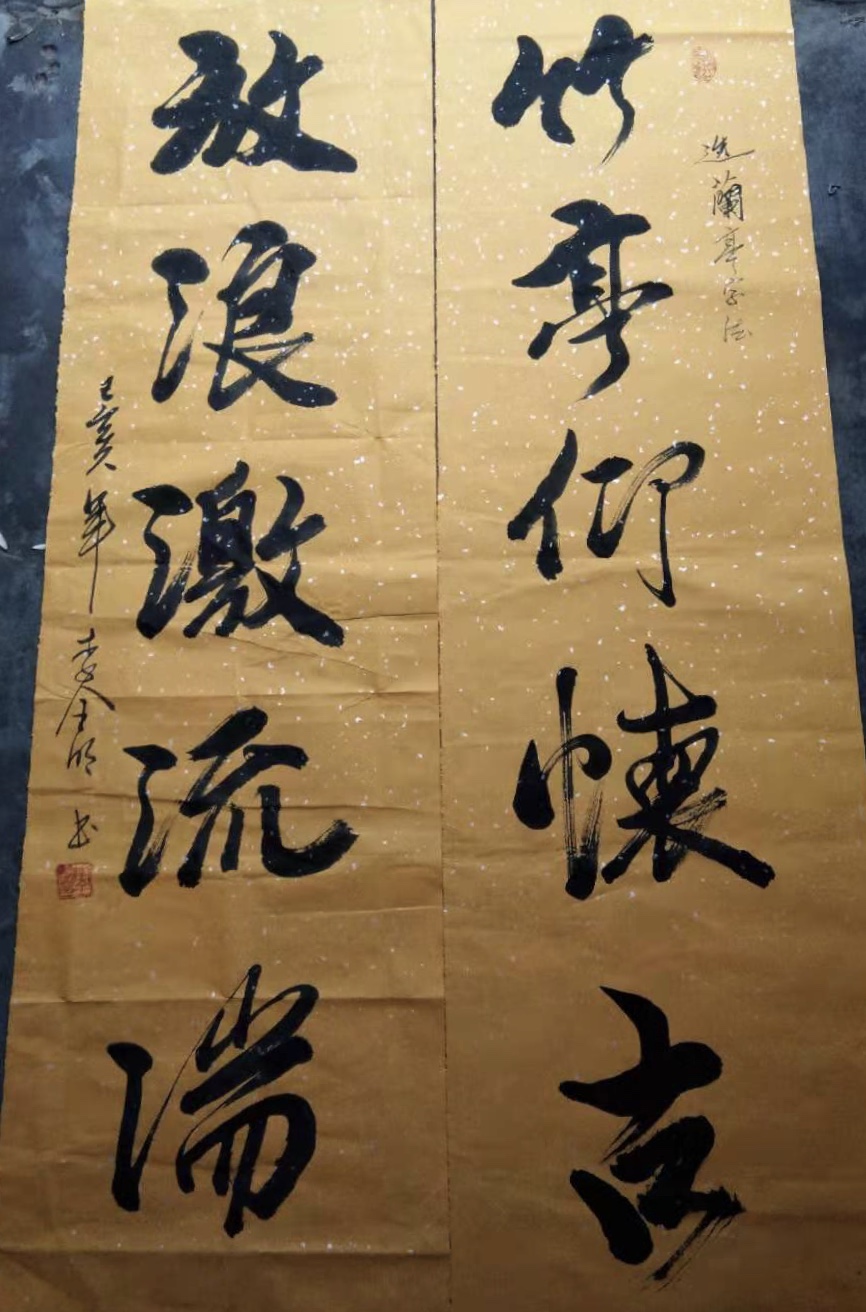 选蘭亭字法
竹亭仰懷古
放浪激流湍
己亥年李全明书